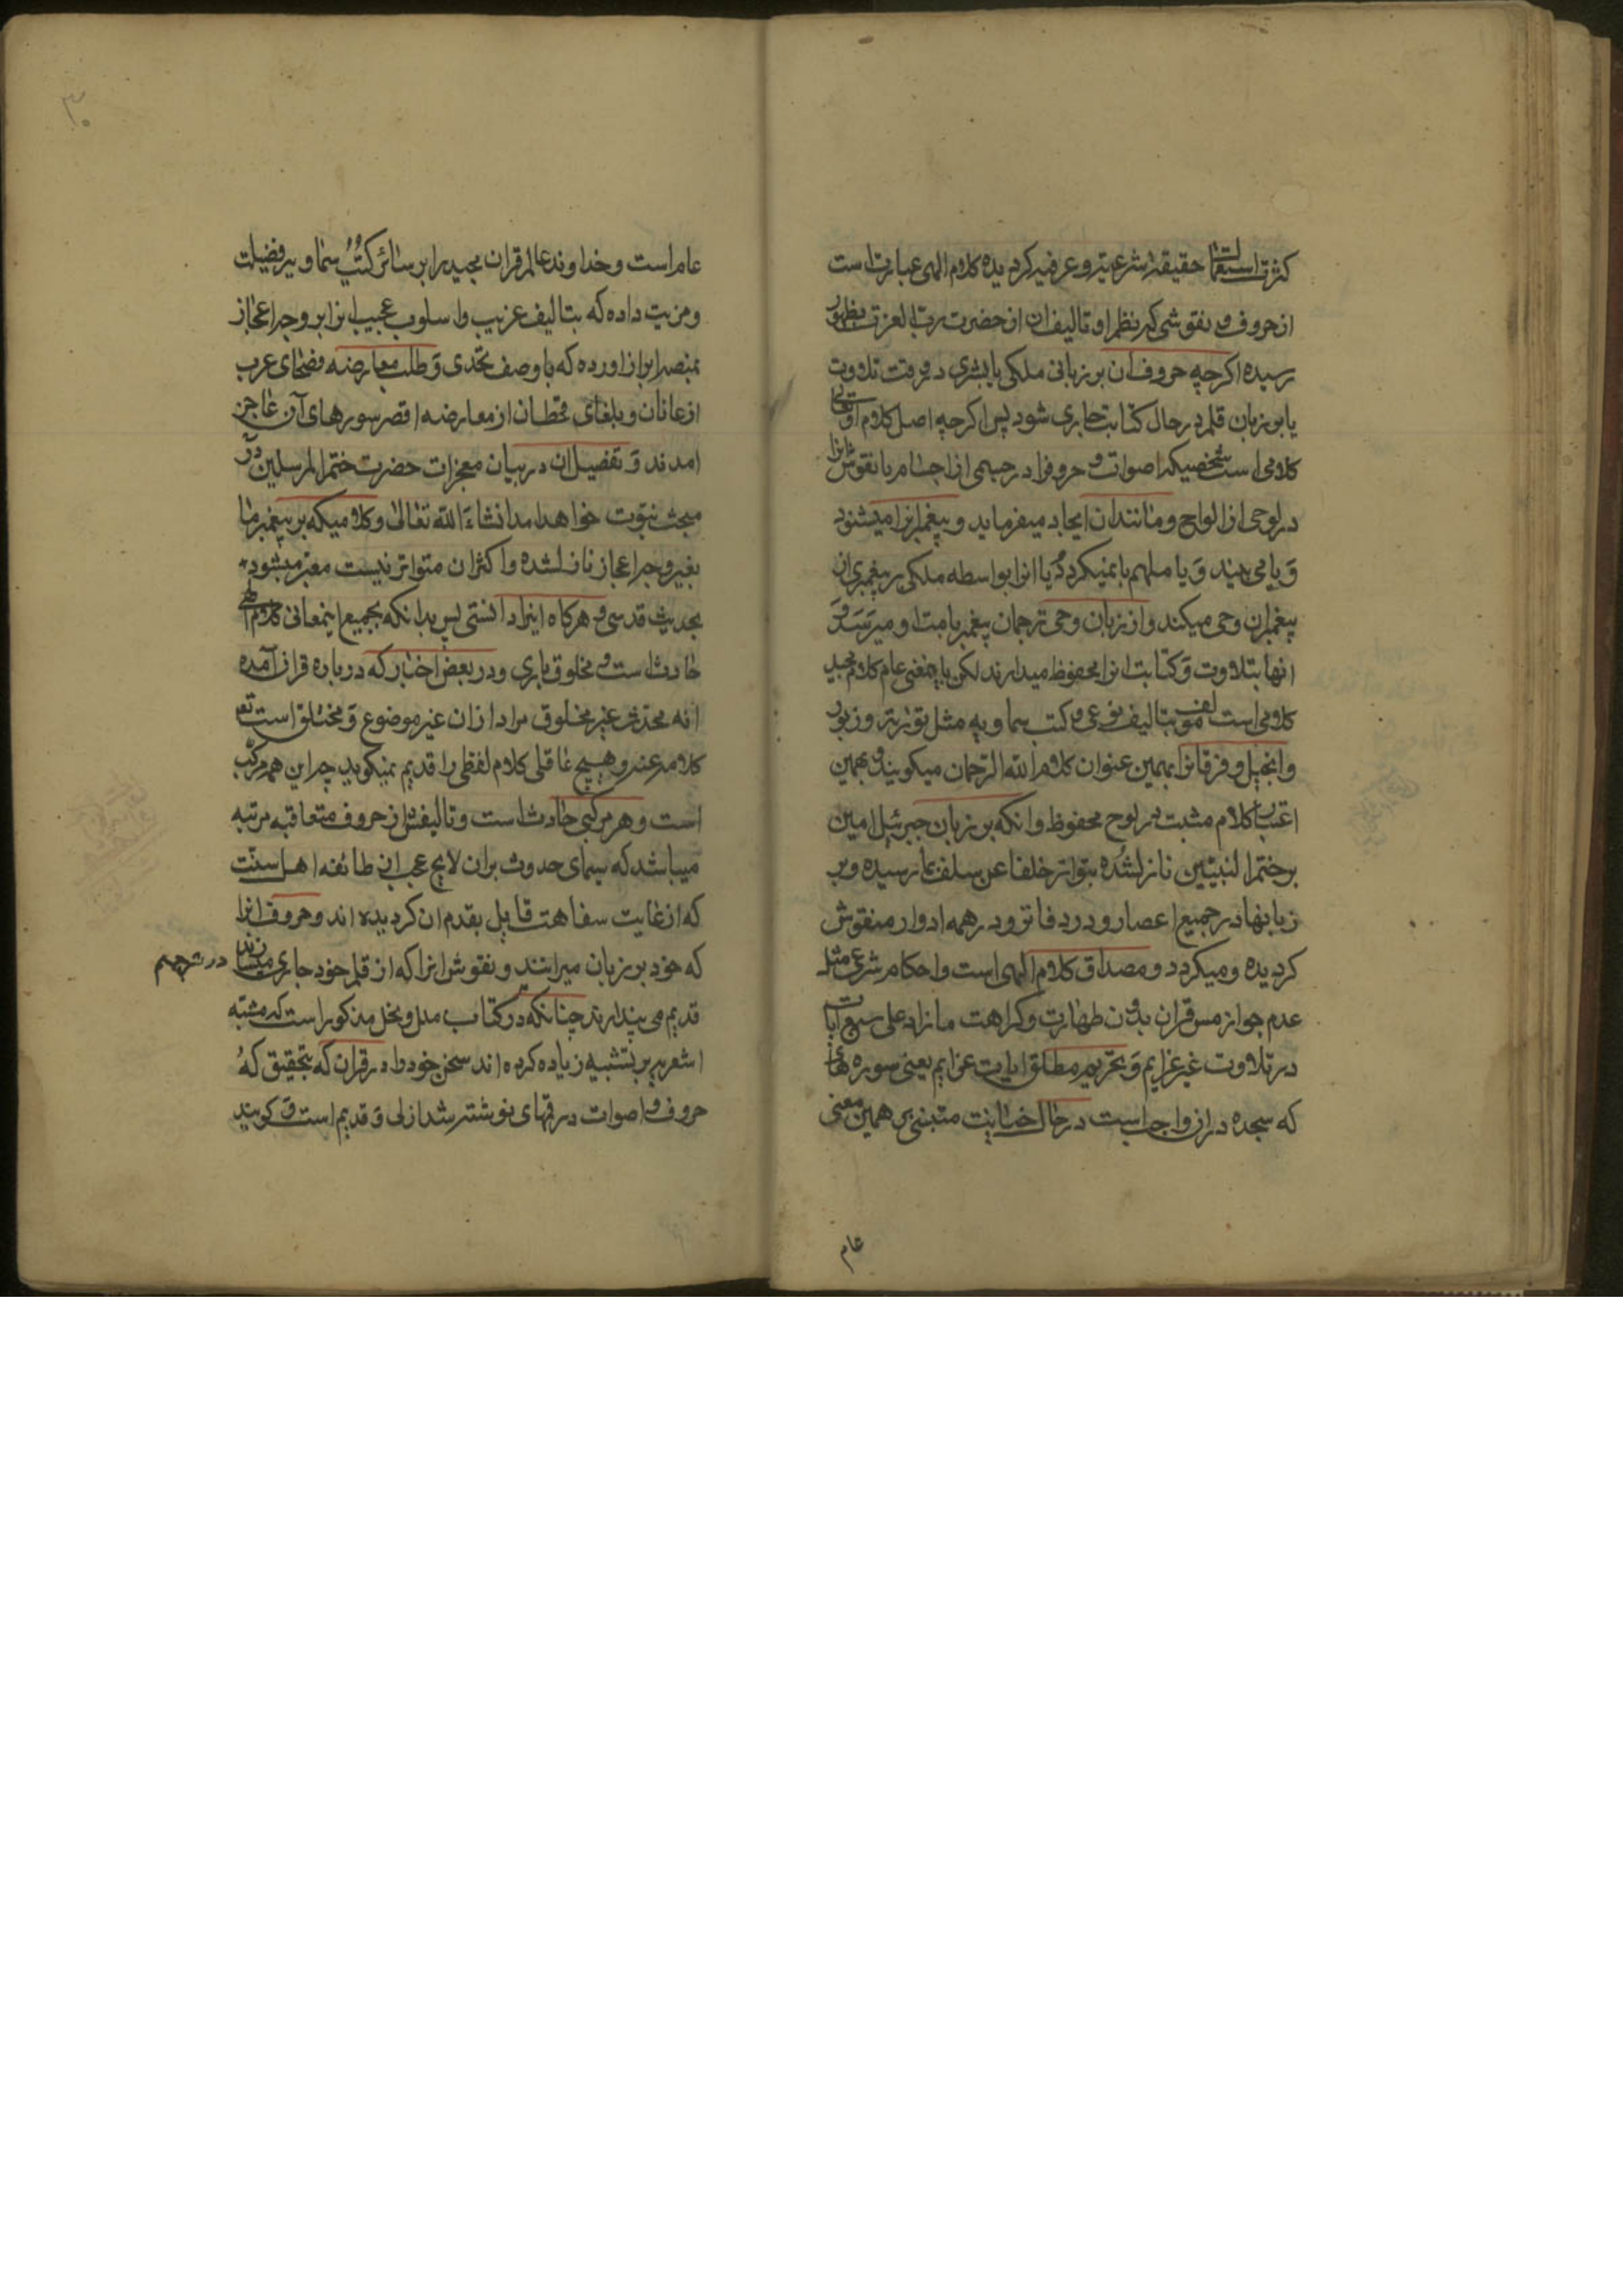 کثرت استعمالت حقیقة شرعیة و عرفیه کردیده کلام الهی عبارت است
از حروف و نقوشی که نظم او تالیف ان از حضرت رب العزت بظهور
رسیده اکرچه حروف ان بر زبانی ملکی یا بشری در وقت تلاوت
یا بر زبان قلم در حال کتابت جاری شود پس اکرچه اصل کلام او تعالی
کلامی است شخصیکه اصوات و حروفرا در جسمی از اجسام یا نقوش انرا
در لوحی از الواح و مانند ان ایجاد میفرماید و پیغمبر انرا میشنود
و یا می بیند و یا ملهم یا بمنیکردد یا انرا بواسطه ملکی بر پیغمبری از
پیغمبران وحی میکند و از زبان وحی ترجمان پیغمبر بامت او میرسد و
انها بتلاوت و کتابت انرا محفوظ میدارند لکن باینمعنی عام کلام مجید
کلامی است مؤلف بتالیف نوعی و کتب سماویه مثل توریة و زبور
و انجیل و فرقانرا بهمین عنوان کلام الله الرحمان میکویند و بهمین
اعتبار کلام مثبت در لوح محفوظ و انکه بر زبان جبرئیل امین
بر ختم النبیین نازل شده بتواتر خلفا عن سلف بما رسیده و بر
زبانها در جمیع اعصار و در دفاتر و در همه ادوار منقوش
کردیده و میکردد و مصداق کلام الهی است و احکام شرعی مثل
عدم جواز مس قران بدون طهارت و کراهت ما زاد علی سبع ایات
در تلاوت غیر عزایم و تحریم مطلق ایات عزایم یعنی سوره های
که سجده در ان واجب است در حال جنابت متبنی بر همین معنی
عام
۳۰
عام است و خداوند عالم قران مجید را بر سائر کتب سماویه فضیلت
و مزیت داده که بتالیف غریب و اسلوب عجیب انرا بر وجه اعجاز
بمنصه ابراز اورده که با وصف تحدی و طلب معارضه فصحای عرب
از عدنان و بلغای قحطان از معارضه اقصر سورهای آن عاجز
امدند و تفصیل ان در بیان معجزات حضرت ختم المرسلین در
مبحث نبوت خواهد امد انشاءالله تعالی و کلامیکه بر پیغمبر ما
بغیر وجه اعجاز نازل شده و اکثر ان متواتر نیست معبر میشود
بحدیث قدسی و هرکاه اینرا دانستی پس بدانکه بجمیع اینمعانی کلام الهی
حادث است و مخلوق باری و در بعض اخبار که درباره قران آمده
انه محدث غیر مخلوق مراد از ان غیر موضوع و مختلق است
کلامه عنه و هیچ عاقلی کلام لفظی را قدیم نمیکوید چرا این همه مرکب
است و هر مرکبی حادث است و تالیفش از حروف متعاقبه مرتبه
میباشد که سیمای حدوث بران لایح عجب از طائفه اهل سنت
که از غایت سفاهت قایل بقدم ان کردیده اند و حروف انرا
که خود بر زبان میرانند و نقوش انرا که از قلم خود جاری میسازند در ترجمه
قدیم می پندارند چنانکه در کتاب ملل و نحل مذکور است که مشبه
اشعریه بر تشبیه زیاده کرده اند سخن خود را در قران که بتحقیق که
حروف و اصوات در رقمهای نوشته شد ازلی و قدیم است و کویند